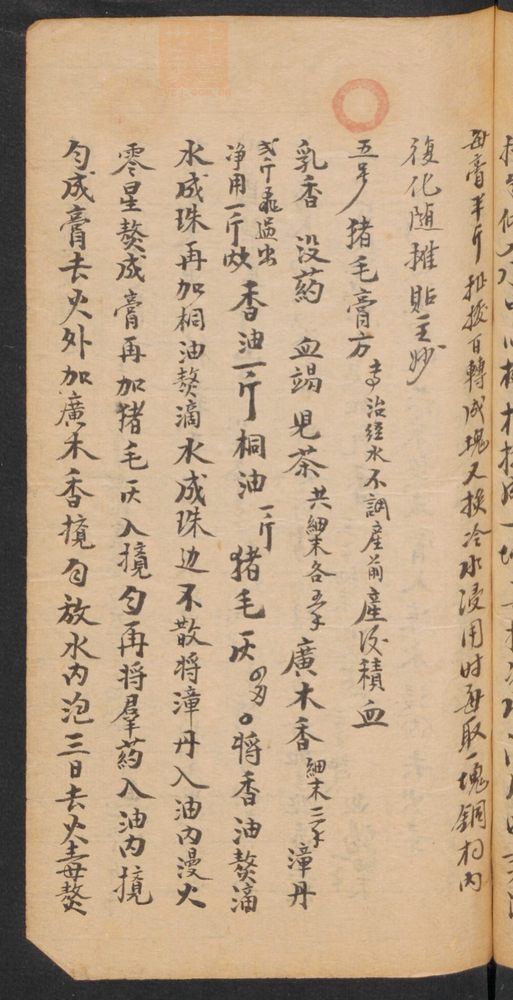 每膏半斤扯拔百轉成塊又換冷水浸用时每取一塊銅杓内
復化随攤貼至妙
五号 猪毛膏方 专治经水不調産前産後積血
乳香 没药 血竭 児茶 共細末各五子 廣木香 細末三子 漳丹
弍斤飛過出净用一斤炒 香油一斤 桐油一斤 猪毛灰四刄。將香油熬滴
水成珠再加桐油熬滴水成珠边不散将漳丹入油内漫火
零星熬成膏再加猪毛灰入攪匀再将羣葯入油内攪
匀成膏去火外加廣木香攪匀放水内泡三日去火毒熬